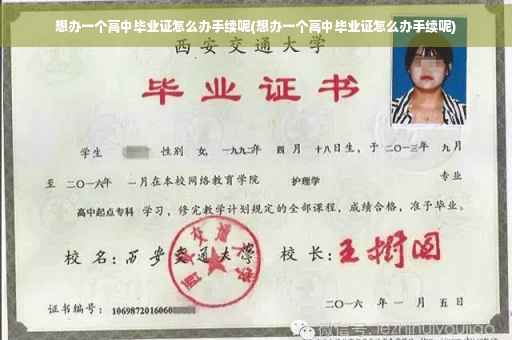 想办一个高中毕业证怎么办手续呢(想办一个高中毕业证怎么办手续呢)
西安交通大学
毕业证书
学生 性别 女, 一九九二年 四月 十八日生, 于 二〇一三年 九月
至 二〇一六年 一月在本校网络教育学院 护理学 专业
高中起点专科 学习, 修完教学计划规定的全部课程, 成绩合格, 准予毕业。
校名: 西安交通大学 校长: 王树国
西安交通大学
证书编号: 1069872016060
二〇一六年 一月 五日
微信号: jiezhinuiyoujiao